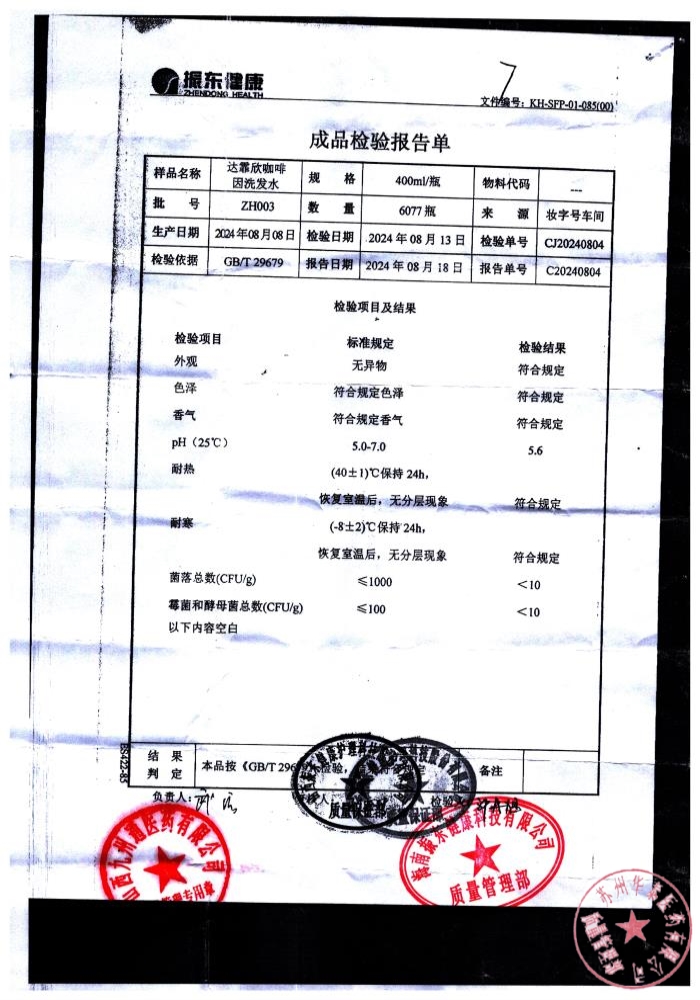 振东健康
ZHENDONG HEALTH
文件编号：KH-SFP-01-085(00)
成品检验报告单
样品名称 达霏欣咖啡因洗发水 规格 400ml/瓶 物料代码 ---
批号 ZH003 数量 6077瓶 来源 妆字号车间
生产日期 2024年08月08日 检验日期 2024年08月13日 检验单号 CJ20240804
检验依据 GB/T 29679 报告日期 2024年08月18日 报告单号 C20240804
检验项目及结果
检验项目 标准规定 检验结果
外观 无异物 符合规定
色泽 符合规定色泽 符合规定
香气 符合规定香气 符合规定
pH（25℃） 5.0-7.0 5.6
耐热 (40±1)℃保持24h，
恢复室温后，无分层现象 符合规定
耐寒 (-8±2)℃保持24h，
恢复室温后，无分层现象 符合规定
菌落总数(CFU/g) ≤1000 ＜10
霉菌和酵母菌总数(CFU/g) ≤100 ＜10
以下内容空白
结果判定 本品按《GB/T 296 检验， 备注
负责人：
质量管理部
山西九州通医药有限公司
专用章
振东健康科技有限公司
质量管理部
苏州 医药有限公司